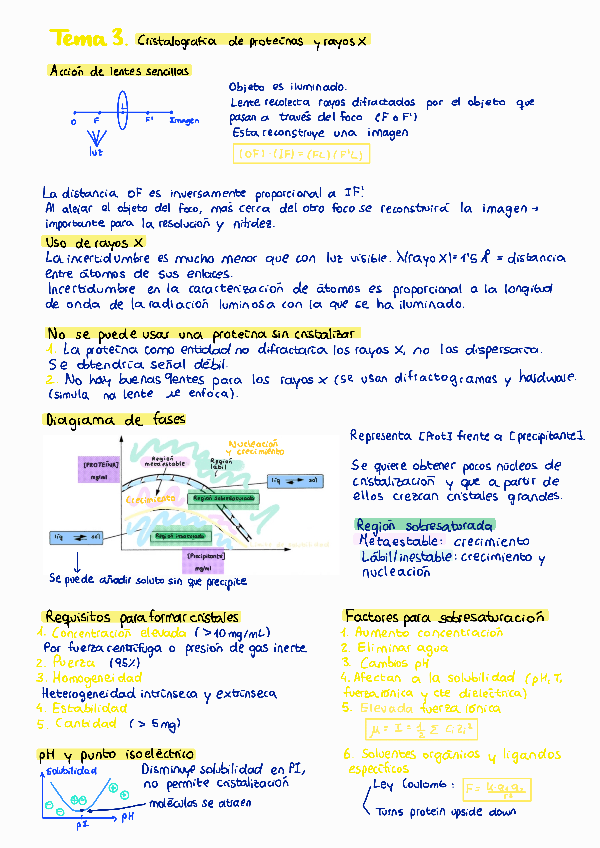 Tema 3. Cristalografía de proteínas y rayos X
Acción de lentes sencillas
O F L F' Imagen
luz
Objeto es iluminado.
Lente recolecta rayos difractados por el objeto que
pasan a través del foco (F o F')
Esta reconstruye una imagen
(OF)·(IF) = (FL)(F'L)
La distancia OF es inversamente proporcional a IF'
Al alejar el objeto del foco, más cerca del otro foco se reconstruirá la imagen →
importante para la resolución y nitidez.
Uso de rayos X
La incertidumbre es mucho menor que con luz visible. λ(rayo X)= 1'5 Å = distancia
entre átomos de sus enlaces.
Incertidumbre en la caracterización de átomos es proporcional a la longitud
de onda de la radiación luminosa con la que se ha iluminado.
No se puede usar una proteína sin cristalizar
1. La proteína como entidad no difractaría los rayos X, no los dispersaría.
Se obtendría señal débil.
2. No hay buenas lentes para los rayos X (se usan difractogramas y hardware.
(simula na lente
enfoca).
Diagrama de fases
[PROTEÍNA]
mg/ml
Región metaestable
Región lábil
Nucleación
y crecimiento
líq ⇌ sol
Crecimiento
Región sobresaturada
líq ⇌ sol
Región insaturada
[Precipitante]
mg/ml
Se puede añadir soluto sin que precipite
Representa [Prot] frente a [precipitante].
Se quiere obtener pocos núcleos de
cristalización y que a partir de
ellos crezcan cristales grandes.
Región sobresaturada
Metaestable: crecimiento
Lábil/inestable: crecimiento y
nucleación
Requisitos para formar cristales
1. Concentración elevada (>10 mg/mL)
Por fuerza centrífuga o presión de gas inerte
2. Pureza (95%)
3. Homogeneidad
Heterogeneidad intrínseca y extrínseca
4. Estabilidad
5. Cantidad (> 5 mg)
Factores para sobresaturación
1. Aumento concentración
2. Eliminar agua
3. Cambios pH
4. Afectan a la solubilidad (pH, T,
fuerza iónica y cte dieléctrica)
5. Elevada fuerza iónica
μ = I = ½ Σ CiZi²
6. Solventes orgánicos y ligandos
específicos
Ley Coulomb:
Turns protein upside down
pH y punto isoeléctrico
Solubilidad
pI
pH
Disminuye solubilidad en PI,
no permite cristalización
moléculas se atraen